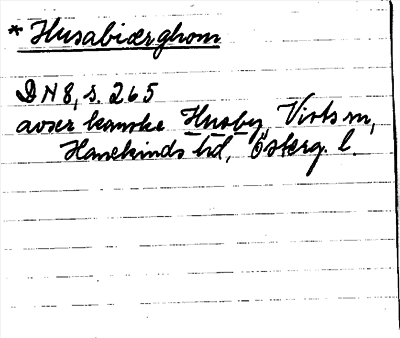 * Husabiærghom
DN 8, s. 265
avser kanske Husby, Virts sn,
Hanekinds hd, Österg. l.